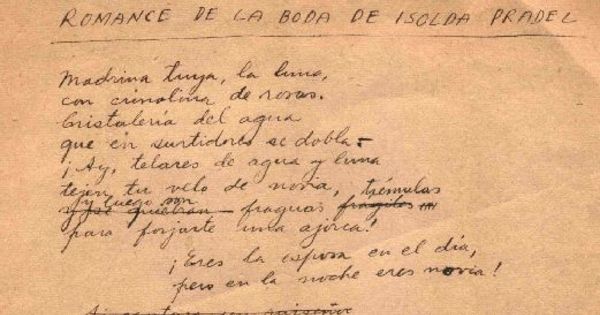 ROMANCE DE LA BODA DE ISOLDA PRADEL
Madrina tuya, la luna,
con crinolina de rosas.
Cristalería del agua
que en surtidores se dobla.
¡Ay, telares de agua y luna
tejen tu velo de novia, trémulas
y luego son
y se quiebran fraguas fragiles
para forjarte una ajorca!
¡Eres la esposa en el día,
pero en la noche eres novia!